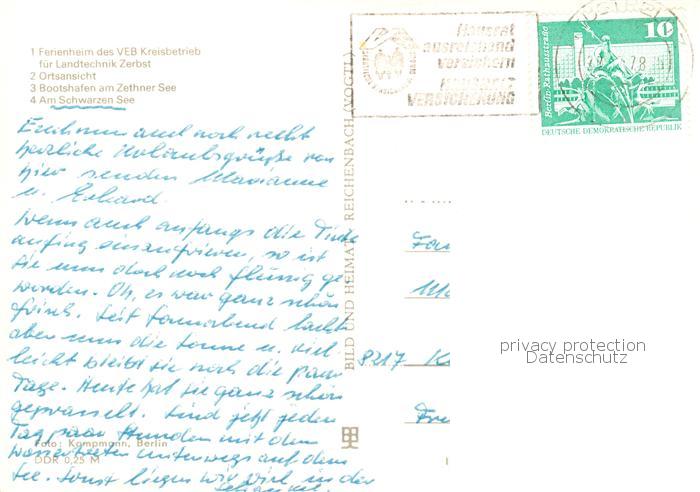 1 Ferienheim des VEB Kreisbetrieb
für Landtechnik Zerbst
2 Ortsansicht
3 Bootshafen am Zethner See
4 Am Schwarzen See
Hausrat
ausreichend
versichern
VERSICHERUNG
Berlin-Rathausstraße
10
DEUTSCHE DEMOKRATISCHE REPUBLIK
BILD UND HEIMAT REICHENBACH (VOGTL)
Euch nun auch noch recht
herzliche Urlaubsgrüße von
hier senden Marianne
u. Erhard.
Wenn auch anfangs die Tinte
anfing einzufrieren, so ist
sie nun doch noch flüssig ge
worden. Oh, es war ganz schön
frisch. Seit Sonnabend lacht
aber nun die Sonne u. viel
leicht bleibt sie noch die paar
Tage. Heute hat sie ganz schön
geprasselt. Sind jetzt jeden
Tag paar Stunden mit dem
Wassertreter unterwegs auf dem
See. Sonst liegen wir viel in der
Foto: Kampmann, Berlin
DDR 0,25 M
8217
privacy protection
Datenschutz